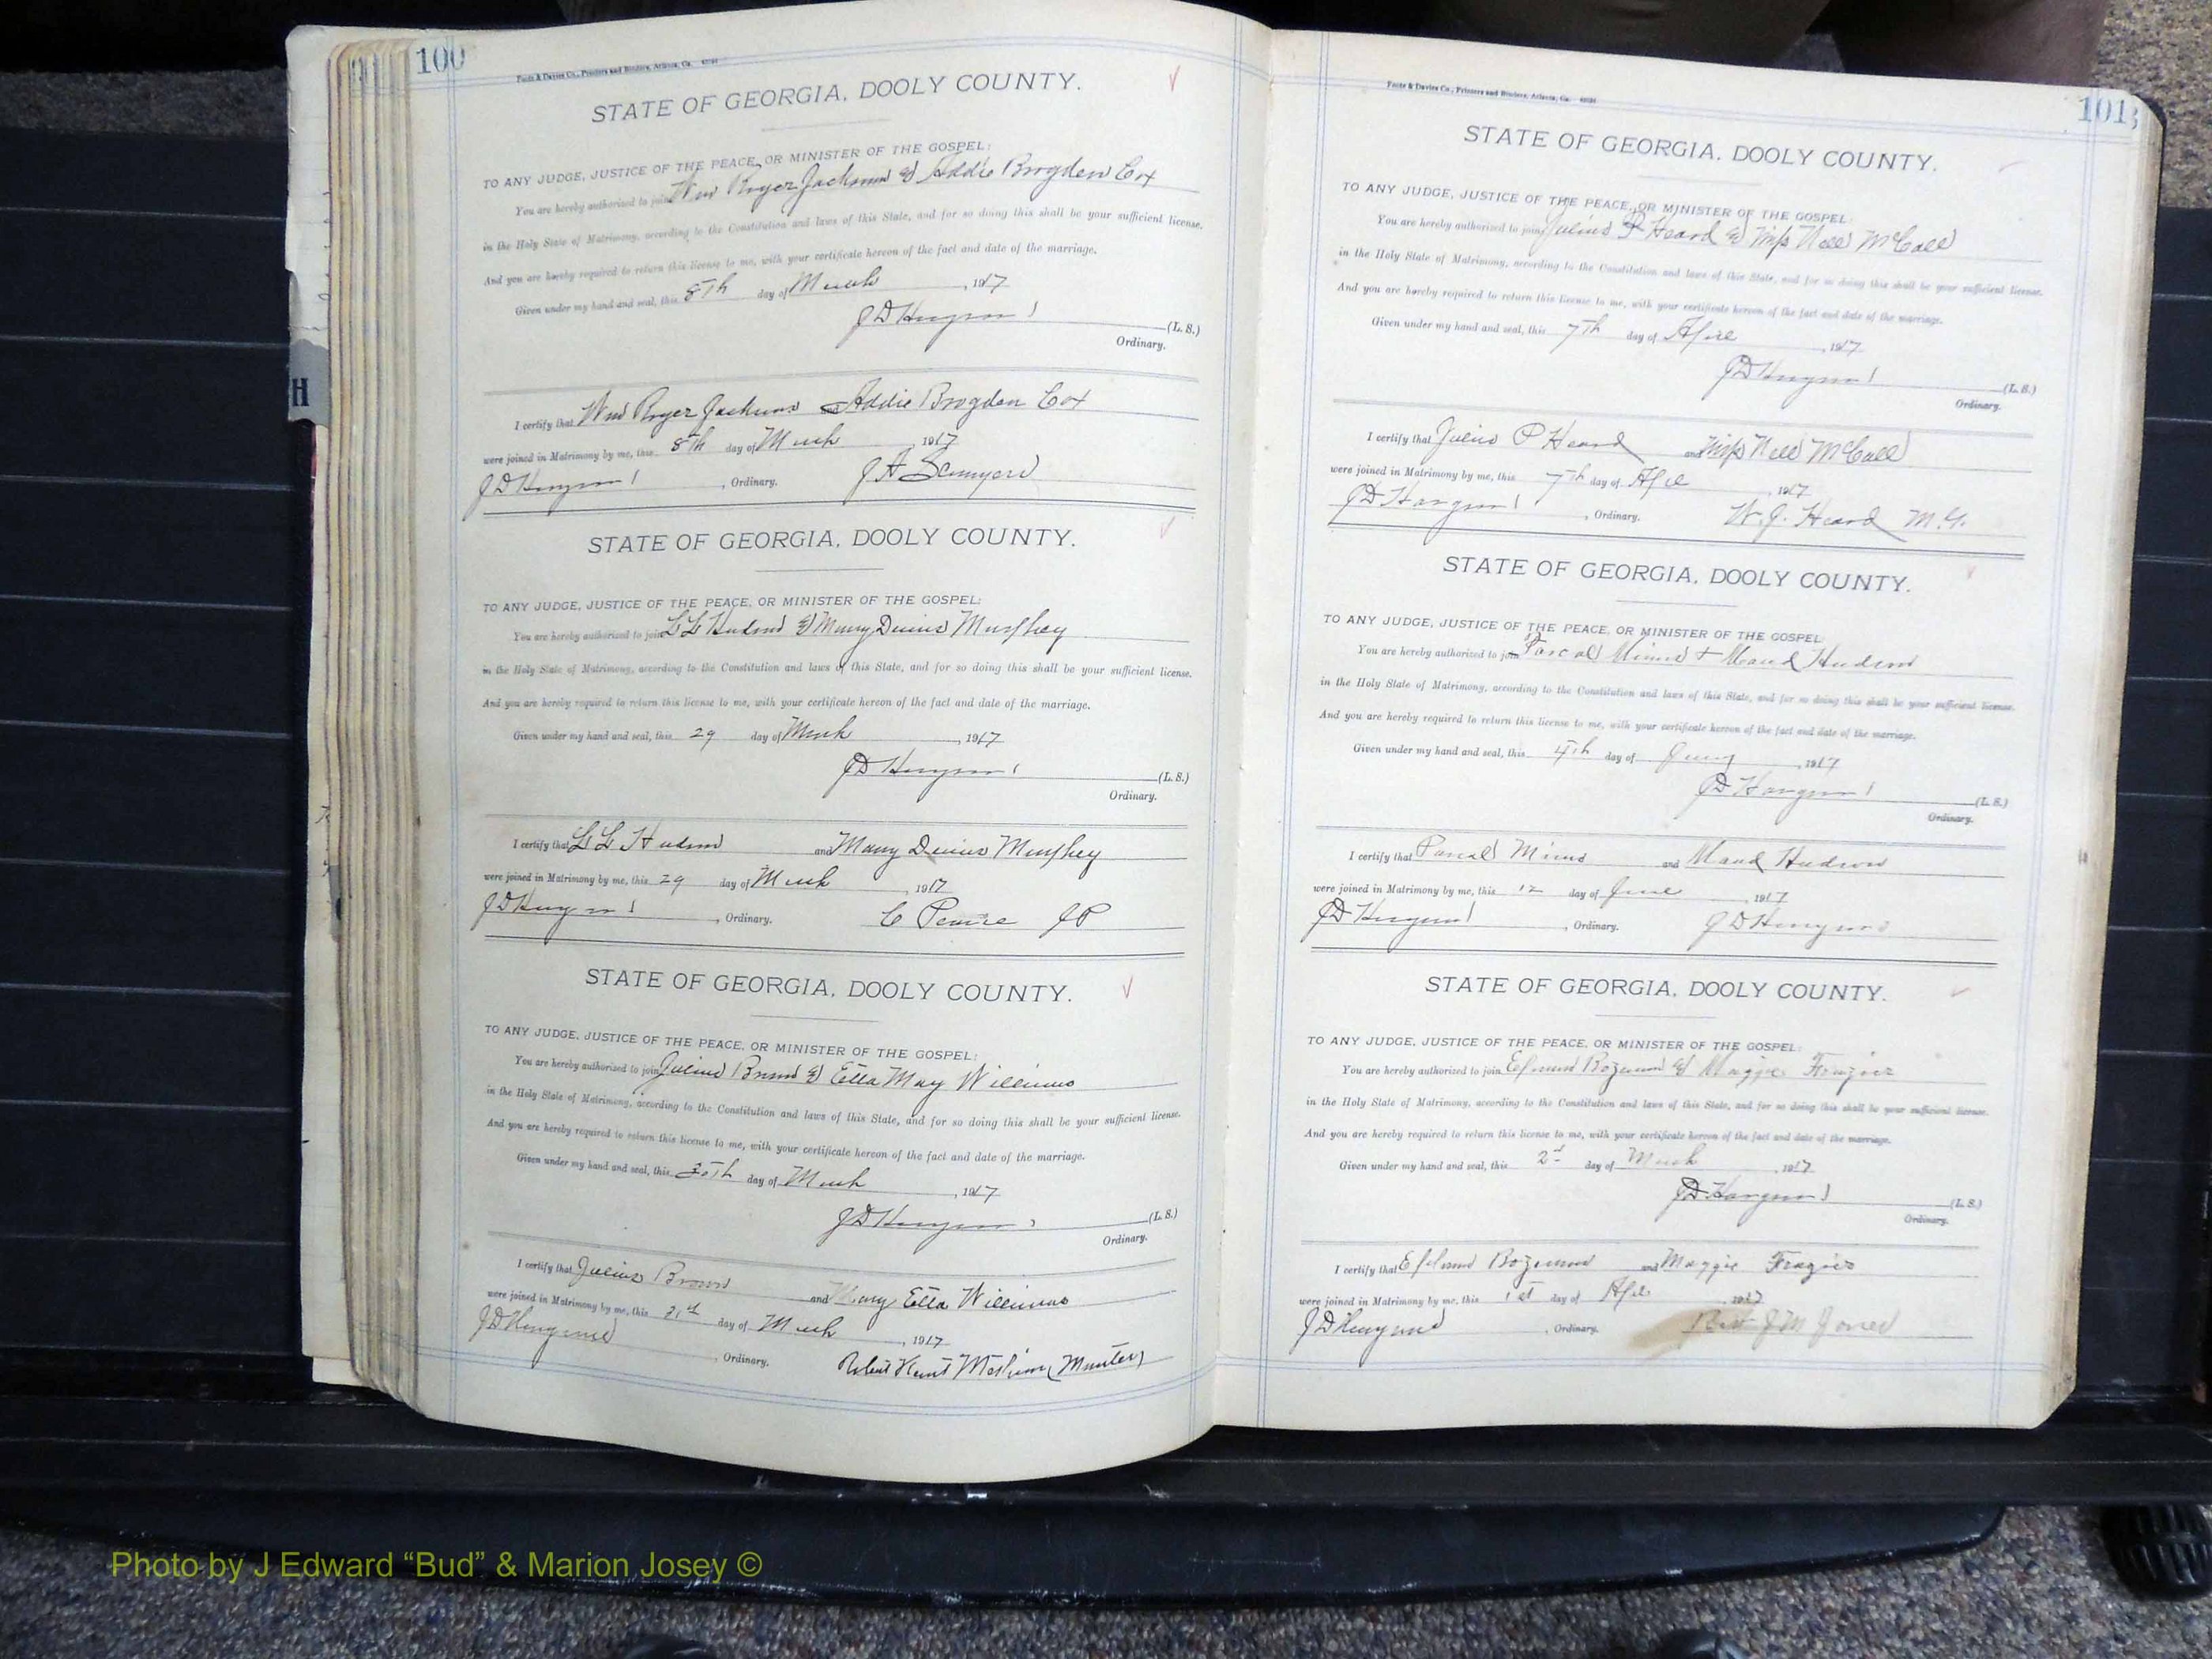 100
Foote & Davies Co., Printers and Binders, Atlanta, Ga.
STATE OF GEORGIA, DOOLY COUNTY.
TO ANY JUDGE, JUSTICE OF THE PEACE, OR MINISTER OF THE GOSPEL:
You are hereby authorized to join Wm Ryer Jackson & Addie Brogden Cox
in the Holy State of Matrimony, according to the Constitution and laws of this State, and for so doing this shall be your sufficient license.
And you are hereby required to return this license to me, with your certificate hereon of the fact and date of the marriage.
Given under my hand and seal, this 8th day of March, 1917
J D Hargrove (L. S.)
Ordinary.
I certify that Wm Ryer Jackson and Addie Brogden Cox
were joined in Matrimony by me, this 8th day of March, 1917
J D Hargrove, Ordinary. J A
STATE OF GEORGIA, DOOLY COUNTY.
TO ANY JUDGE, JUSTICE OF THE PEACE, OR MINISTER OF THE GOSPEL:
You are hereby authorized to join L L Hudson & Mary Murphey
in the Holy State of Matrimony, according to the Constitution and laws of this State, and for so doing this shall be your sufficient license.
And you are hereby required to return this license to me, with your certificate hereon of the fact and date of the marriage.
Given under my hand and seal, this 29 day of March, 1917
J D Hargrove (L. S.)
Ordinary.
I certify that L L Hudson and Mary Murphey
were joined in Matrimony by me, this 29 day of March, 1917
J D Hargrove, Ordinary. C JP
STATE OF GEORGIA, DOOLY COUNTY.
TO ANY JUDGE, JUSTICE OF THE PEACE, OR MINISTER OF THE GOSPEL:
You are hereby authorized to join Julius Brown & Ella May Williams
in the Holy State of Matrimony, according to the Constitution and laws of this State, and for so doing this shall be your sufficient license.
And you are hereby required to return this license to me, with your certificate hereon of the fact and date of the marriage.
Given under my hand and seal, this 30th day of March, 1917
J D Hargrove (L. S.)
Ordinary.
I certify that Julius Brown and Mary Ella Williams
were joined in Matrimony by me, this day of March, 1917
J D Hargrove, Ordinary. Robert
101
Foote & Davies Co., Printers and Binders, Atlanta, Ga.
STATE OF GEORGIA, DOOLY COUNTY.
TO ANY JUDGE, JUSTICE OF THE PEACE, OR MINISTER OF THE GOSPEL:
You are hereby authorized to join Julius P Heard & Miss Nell McCall
in the Holy State of Matrimony, according to the Constitution and laws of this State, and for so doing this shall be your sufficient license.
And you are hereby required to return this license to me, with your certificate hereon of the fact and date of the marriage.
Given under my hand and seal, this 7th day of April, 1917
J D Hargrove (L. S.)
Ordinary.
I certify that Julius P Heard and Miss Nell McCall
were joined in Matrimony by me, this 7th day of Apl, 1917
J D Hargrove, Ordinary. W. J. Heard M. G.
STATE OF GEORGIA, DOOLY COUNTY.
TO ANY JUDGE, JUSTICE OF THE PEACE, OR MINISTER OF THE GOSPEL:
You are hereby authorized to join Pascal Mims + Maud Hudson
in the Holy State of Matrimony, according to the Constitution and laws of this State, and for so doing this shall be your sufficient license.
And you are hereby required to return this license to me, with your certificate hereon of the fact and date of the marriage.
Given under my hand and seal, this 4th day of, 1917
J D Hargrove (L. S.)
Ordinary.
I certify that Pascal Mims and Maud Hudson
were joined in Matrimony by me, this 12 day of June, 1917
J D Hargrove, Ordinary. J D Hargrove
STATE OF GEORGIA, DOOLY COUNTY.
TO ANY JUDGE, JUSTICE OF THE PEACE, OR MINISTER OF THE GOSPEL:
You are hereby authorized to join Bozeman & Maggie Frazier
in the Holy State of Matrimony, according to the Constitution and laws of this State, and for so doing this shall be your sufficient license.
And you are hereby required to return this license to me, with your certificate hereon of the fact and date of the marriage.
Given under my hand and seal, this 2d day of March, 1917
J D Hargrove (L. S.)
Ordinary.
I certify that Bozeman and Maggie Frazier
were joined in Matrimony by me, this 1st day of Apl, 1917
J D Hargrove, Ordinary. Rev J M Jones
H
Photo by J Edward “Bud” & Marion Josey ©